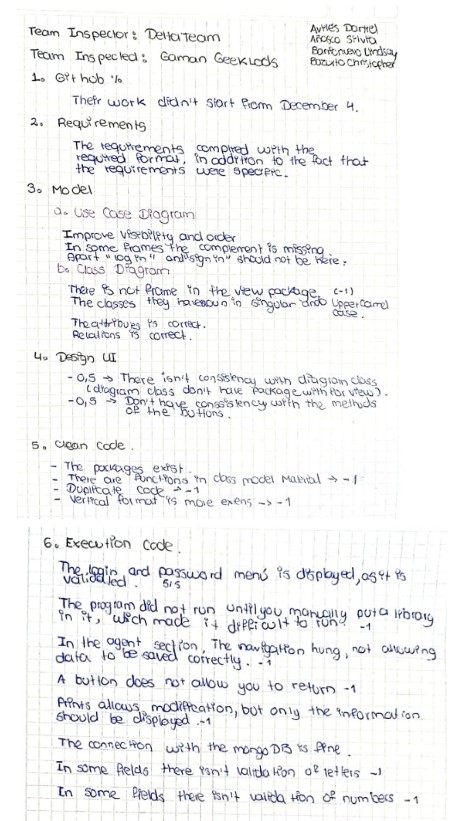 Team Inspector: DeltaTeam
Aviles Dariel
Team Inspected: Gaman GeekLads
Orosco Silvia
Lindsay
Christopher
1. Git hub %
Their work didn't start from December 4.
2. Requirements
The requirements complied with the
required format, in addition to the fact that
the requirements were specific.
3. Model
a. Use Case Diagram
Improve visibility and order
In some frames the complement is missing
Apart "log in" and "sign in" should not be here.
b. Class Diagram
There is not frame in the view package (-1)
The classes they have noun in singular and UpperCamel
case.
The attribues is correct.
Relations is correct.
4. Design UI
-0,5 → There isn't consistency with diagram class
(diagram class don't have package with for view).
-0,5 → Don't have consistency with the methods
of the buttons.
5. Clean Code.
- The packages exist.
- There are functions in class model Material → -1
- Duplicate code → -1
- Vertical format is more → -1
6. Execution Code.
The login and password menú is displayed, as it is
validated. 5/5
The program did not run until you manually put a library
in it, wich made it difficult to run. -1
In the agent section, The navigation hung, not allowing
data to be saved correctly. -1
A button does not allow you to return -1
Prints allows modification, but only the information
should be displayed. -1
The connection with the mongo DB is fine.
In some fields there isn't validation of letters -1
In some fields there isn't validation of numbers -1